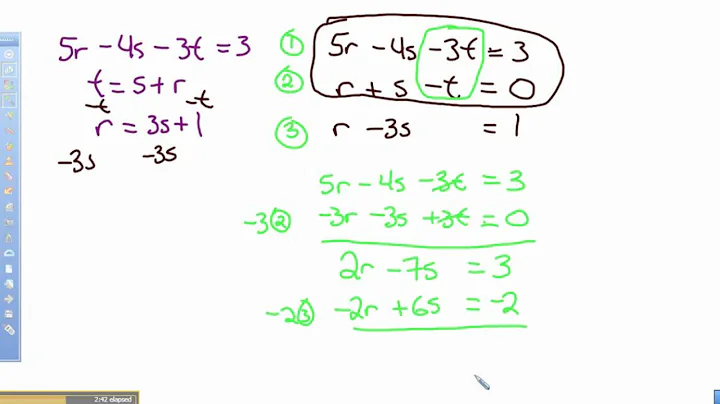 5r - 4s - 3t = 3
t = s + r
-t -t
r = 3s + 1
-3s -3s
① 5r - 4s - 3t = 3
② r + s - t = 0
③ r - 3s = 1
5r - 4s - 3t = 3
-3② -3r - 3s + 3t = 0
2r - 7s = 3
-2③ -2r + 6s = -2
2:42 elapsed